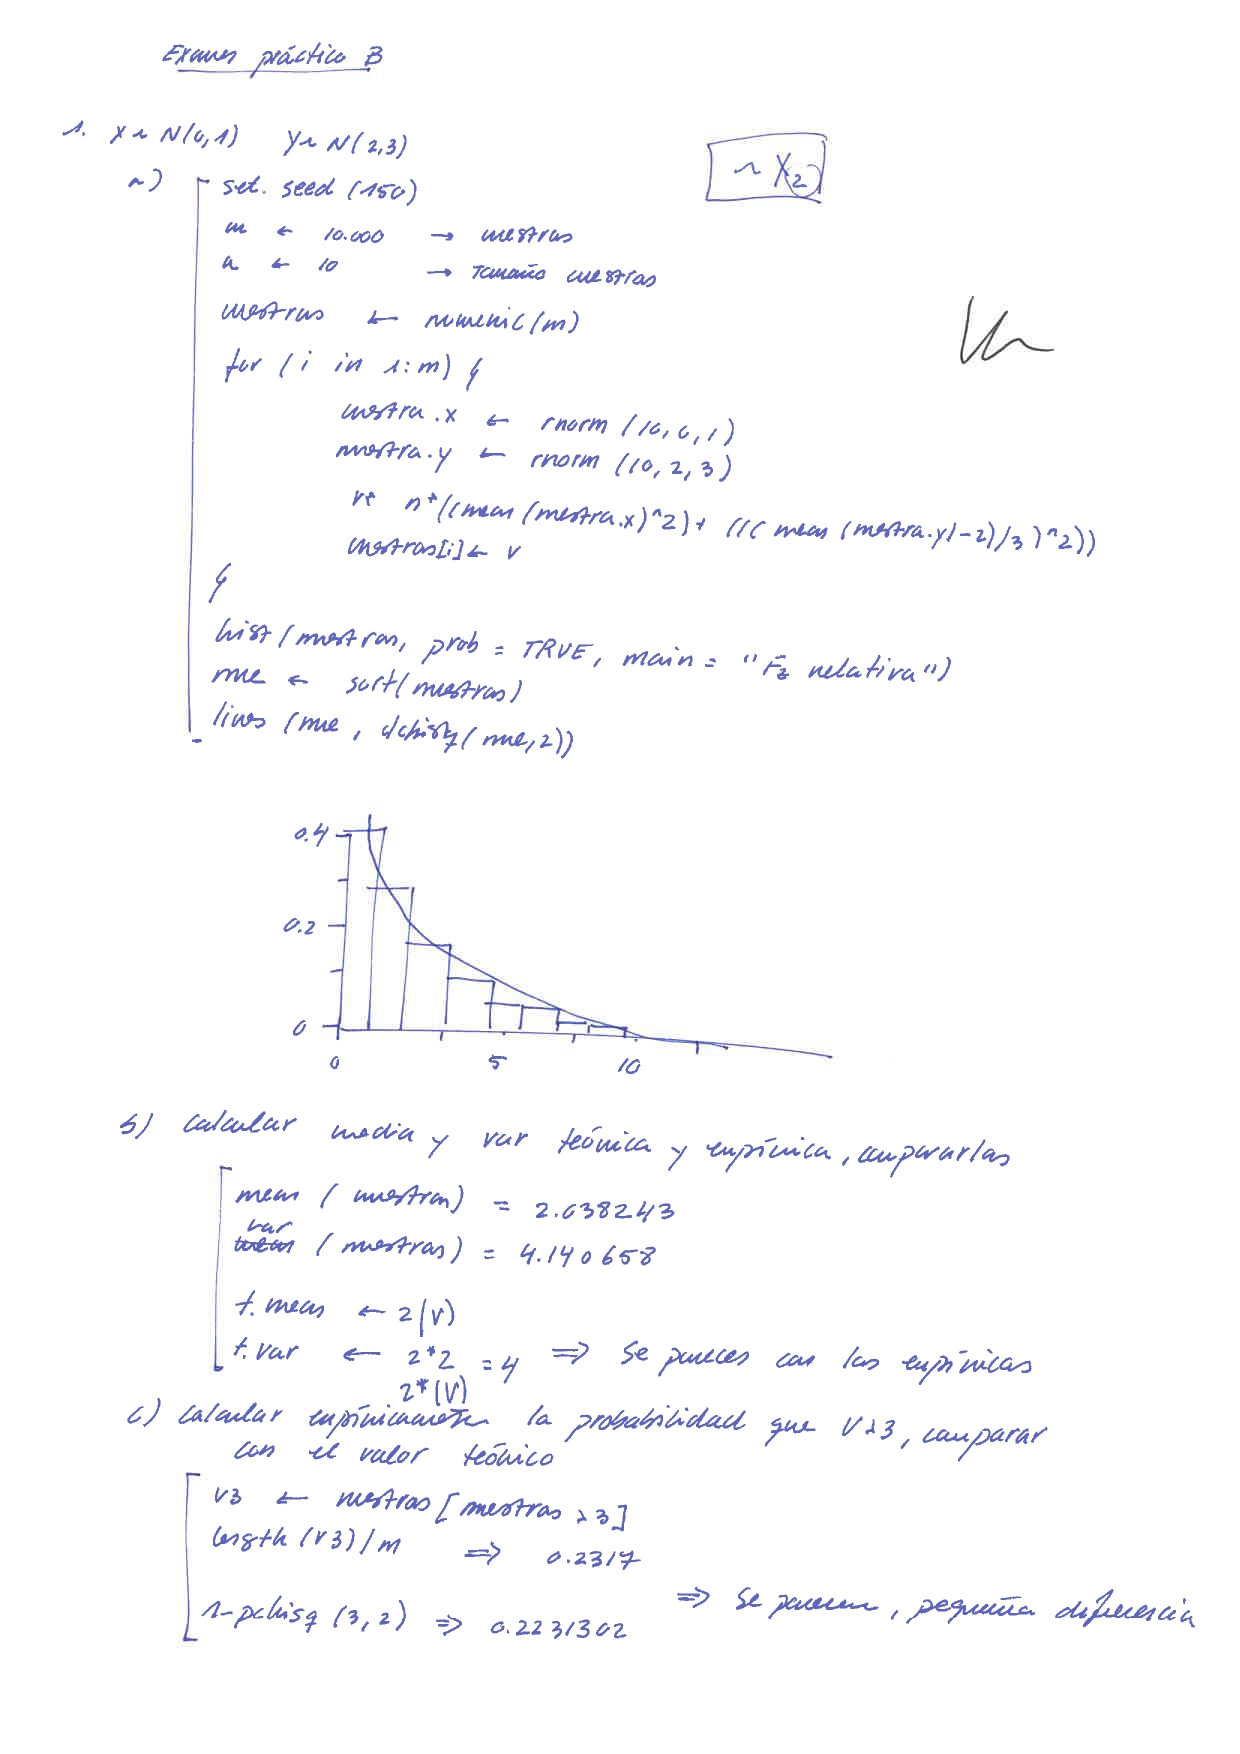 Examen práctico B
1. X ~ N(0,1) Y ~ N(2,3)
~ X2
a) set.seed (150)
m ← 10.000 → muestras
n ← 10 → Tamaño muestras
muestras ← numeric(m)
for (i in 1:m) {
muestra.x ← rnorm (10,0,1)
muestra.y ← rnorm (10,2,3)
v← n*((mean (muestra.x)^2)+ (((mean (muestra.y)-2)/3)^2))
muestras[i] ← v
}
hist(muestras, prob = TRUE, main = "Fz relativa")
mue ← sort(muestras)
lines (mue, dchisq(mue,2))
0.4
0.2
0
0 5 10
b) calcular media y var teórica y empírica, compararlas
mean (muestras) = 2.038243
var
mean (muestras) = 4.140658
t.mean ← 2(V)
t.var ← 2*2 = 4 ⇒ Se parecen con las empíricas
2*(V)
c) calcular empíricamente la probabilidad que V>3, comparar
con el valor teórico
v3 ← muestras[muestras >3]
length (v3)/m ⇒ 0.2317
1-pchisq (3,2) ⇒ 0.2231302
⇒ Se parecen, pequeña diferencia